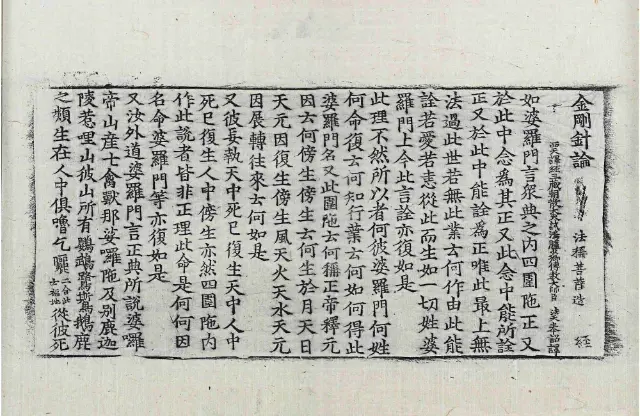 金剛針論 法稱菩薩造 經
西天譯經三藏朝散大夫試鴻臚 傳教大師臣 法天奉詔譯
如婆羅門言衆典之內四圍陁正又
於此中念為其正又此念中能所詮
正又於此中能詮為正唯此最上無
法過此世若無此業去何作由此能
詮若愛若恚從此而生如一切姓婆
羅門上今此言詮亦復如是
此理不然所以者何彼婆羅門何姓
何命復去何知行業去何如何得此
婆羅門名又此圍陁去何稱正帝釋元
因去何傍生傍生去何生於月天日
天元因復生傍生風天火天水天元
因展轉往來去何如是
又彼妄執天中死已復生天中人中
死已復生人中傍生亦然四圍陁內
作此說者皆非正理此命是何何因
名命婆羅門等亦復如是
又汝外道婆羅門言正典所說婆囉
帝山産七禽獸那婆囉陁及別鹿迦
陵惹哩山彼山所有鸚鵡鴛鴦鵝鹿
之類生在人中俱嚕乞 二合此土福地從彼死